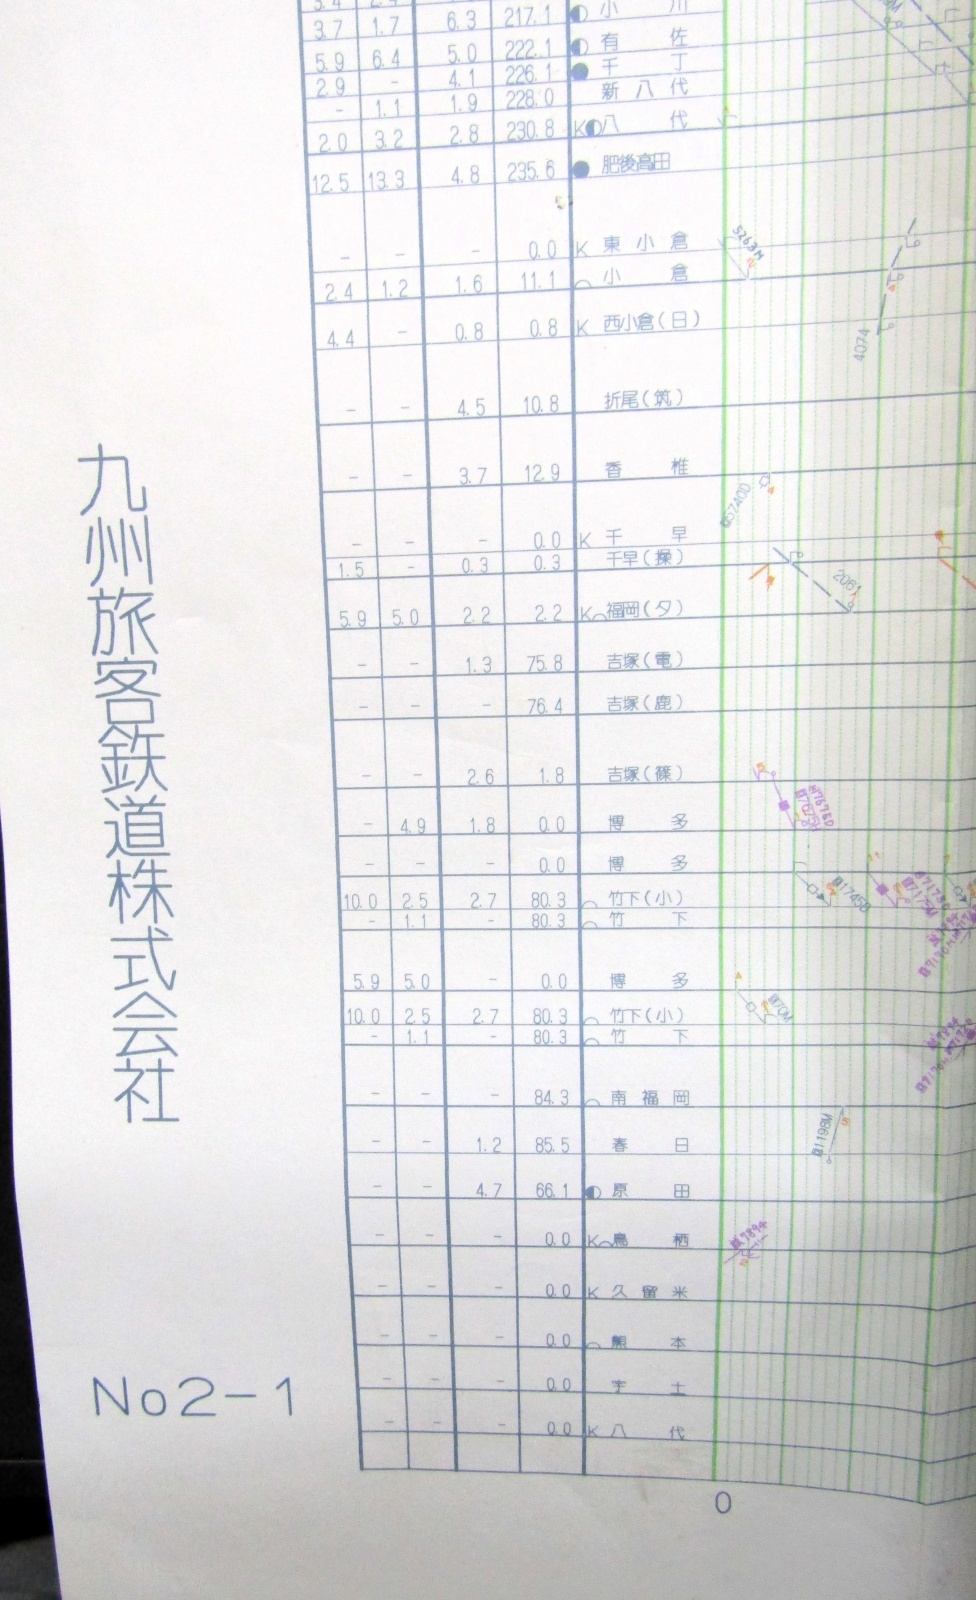 3.7 1.7 6.3 217.1 小川
5.9 6.4 5.0 222.1 有佐
2.9 - 4.1 226.1 千丁
- 1.1 1.9 228.0 新八代
2.0 3.2 2.8 230.8 K 八代
12.5 13.3 4.8 235.6 肥後高田
- - - 0.0 K 東小倉
5263M
2.4 1.2 1.6 11.1 小倉
4.4 - 0.8 0.8 K 西小倉(日)
4074
- - 4.5 10.8 折尾(筑)
- - 3.7 12.9 香椎
- - - 0.0 K 千早
1.5 - 0.3 0.3 千早(操)
2061
5.9 5.0 2.2 2.2 K 福岡(タ)
- - 1.3 75.8 吉塚(電)
- - - 76.4 吉塚(鹿)
- - 2.6 1.8 吉塚(篠)
- 4.9 1.8 0.0 博多
- - - 0.0 博多
10.0 2.5 2.7 80.3 竹下(小)
- 1.1 - 80.3 竹下
5.9 5.0 - 0.0 博多
10.0 2.5 2.7 80.3 竹下(小)
- 1.1 - 80.3 竹下
- - - 84.3 南福岡
1198M
- - 1.2 85.5 春日
- - 4.7 66.1 原田
- - - 0.0 K 鳥栖
- - - 0.0 K 久留米
- - - 0.0 熊本
- - - 0.0 宇土
- - - 0.0 K 八代
0
九州旅客鉄道株式会社
No2-1